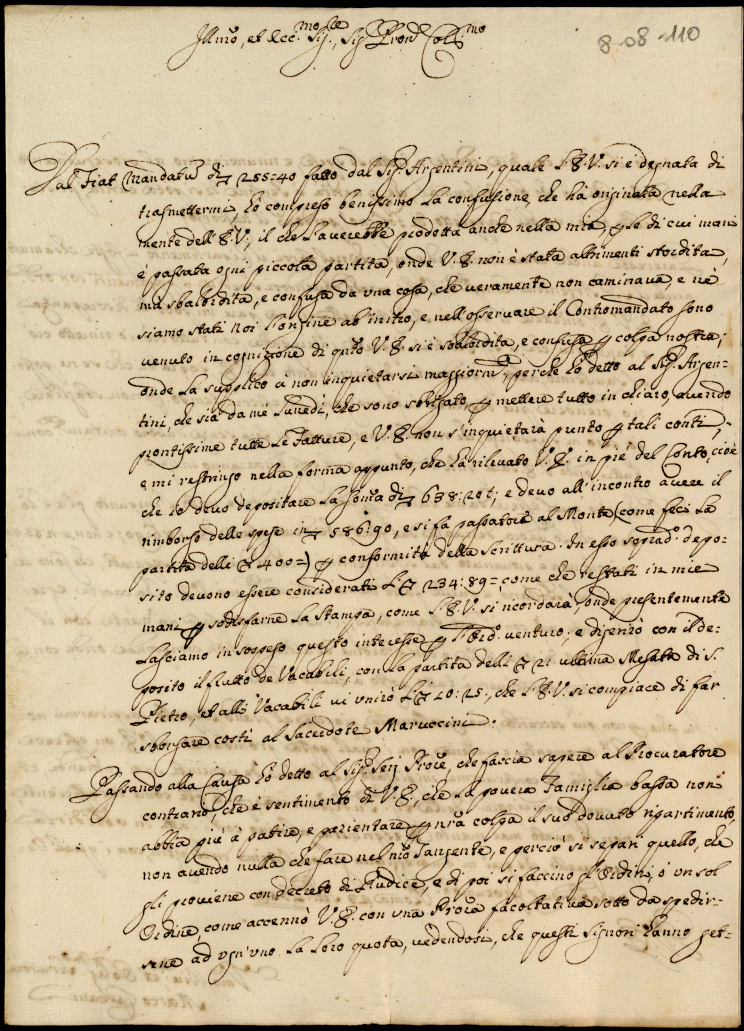 8-08-110
Illmo, et Ecc.mo Sig.re, Sig.r Pron. Coll.mo
Dal Fiat Mandatu di 255:40 fatto dal Sig. Argentini, quale S. E. V. si è degnata di
trasmettermi, hò compreso benissimo la confusione, che hà originata nella
mente dell'E. V., il che l'averebbe prodotta anche nella mia, se di cui mani
è passata ogni piccola partita, onde V. E. non è stata altrimenti stordita,
mà sbalordita, e confusa da una cosa, che veramente non caminava, e ne
siamo stati noi l'origine ab initio, e nell'osservare il Contromandato sono
venuto in cognizione di q.to V. E. si è sbalordita, e confusa colpa nostra;
onde la supplico à non inquietarsi maggiorm.te, perche hò detto al Sig. Argen-
tini, che sia da mè Lunedì, che sono sbrigato, mettere tutto in chiaro, avendo
prontissime tutte le fatture, e V. E. non s'inquietarà punto tali conti,
e mi restringo nella forma appunto, che hà rilevato V. E. in piè del Conto, cioè
che io devo depositare la somã di 638:20; e devo all'incontro avere il
rimborso delle spese in 586:90, e si fà passatora al Monte (come feci la
partita delli 400=) conformità della Scrittura. In esso soprad.o depo-
sito devono essere considerati li 234:89=, come che restati in mie
mani sodisfarne la Stampa, come S. E. V. si ricordarà, onde presentemente
lasciamo in sospeso questo interesse venturo; e disenzò con il de-
posito il frutto de Vacabili, con la partita delli 21 ultima Mesata di S.
Pietro, et alli Vacabili vi unirò li 20:25:, che S. E. V. si compiace di far
sborsare costì al Sacerdote Maruccini.
Passando alla Causa hò detto al Sig. Serj Prore, che faccia sapere al Procuratore
contrario, che è sentimento di V. E., che la povera Famiglia bassa non
abbia più à patire, e pazientare nrã colpa il suo dovuto ripartimento,
non avendo nulla che fare nel nrõ Tangente, e perciò si separi quello, che
gli proviene con decreto di Giudice, e di poi si faccino gl'Ordini, ò un sol
Ordine, come accennò V. E. con una Prora facoltativa sotto da spedir-
sene ad ogn'uno la loro quota, vedendosi, che questi Signori hanno get-